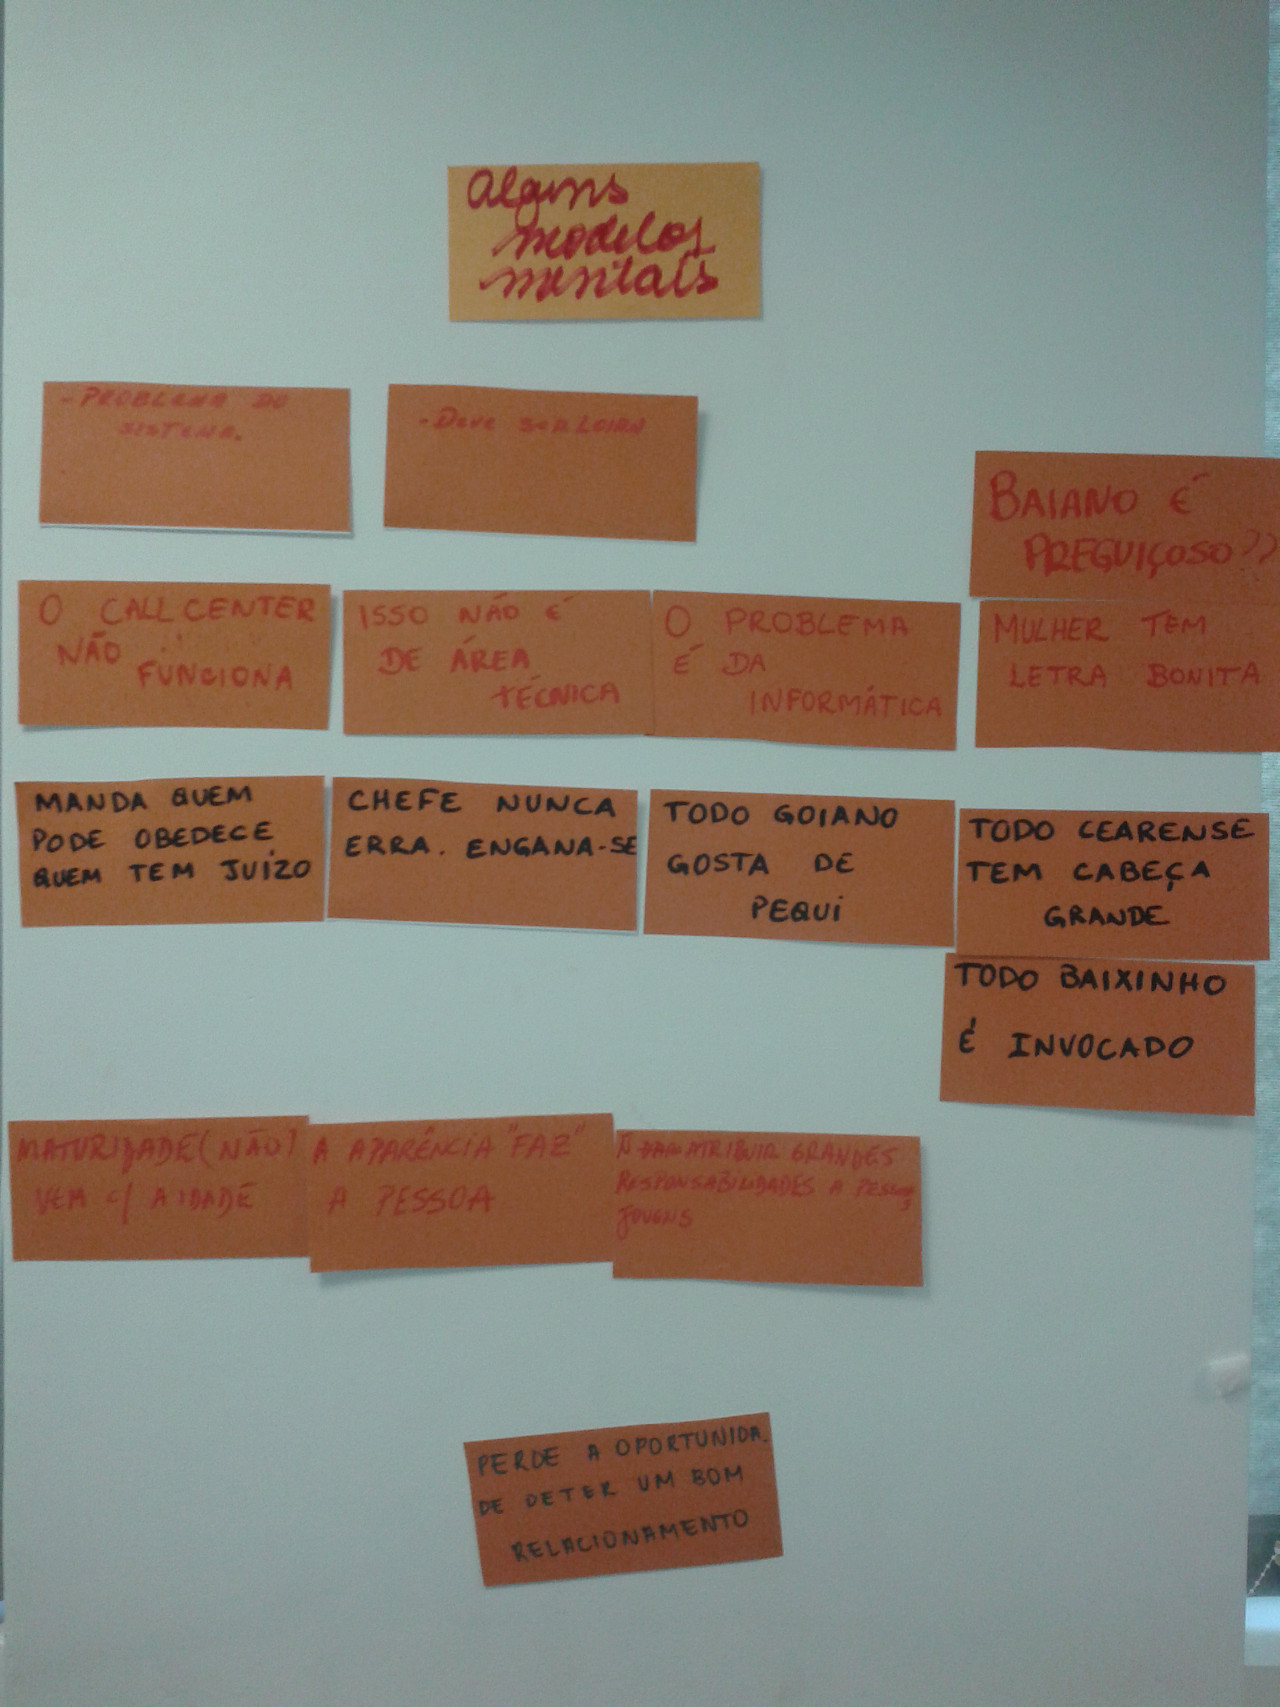 Alguns
modelos
mentais
- PROBLEMA DO
SISTEMA.
- DEVE SER LOIRA
BAIANO É
PREGUIÇOSO??
O CALL CENTER
NÃO
FUNCIONA
ISSO NÃO É
DE ÁREA
TÉCNICA
O PROBLEMA
É DA
INFORMÁTICA
MULHER TEM
LETRA BONITA
MANDA QUEM
PODE OBEDECE
QUEM TEM JUÍZO
CHEFE NUNCA
ERRA. ENGANA-SE
TODO GOIANO
GOSTA DE
PEQUI
TODO CEARENSE
TEM CABEÇA
GRANDE
TODO BAIXINHO
É INVOCADO
MATURIDADE (NÃO)
VEM C/ A IDADE
A APARÊNCIA "FAZ"
A PESSOA
ATRIBUIR GRANDES
RESPONSABILIDADES A PESSOAS
JOVENS
PERDE A OPORTUNIDA.
DE DETER UM BOM
RELACIONAMENTO